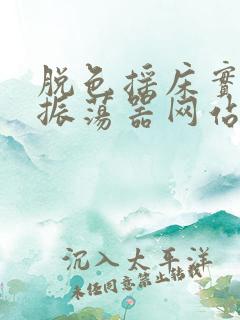 脱色摇床实
振荡器网站
沉入太平洋
未经同意禁止转载